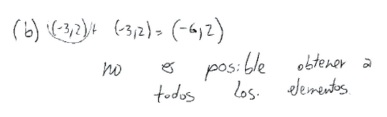 (b) (-3,2)+ (-3,2) = (-6,2)
no es posible obtener a
todos los. elementos